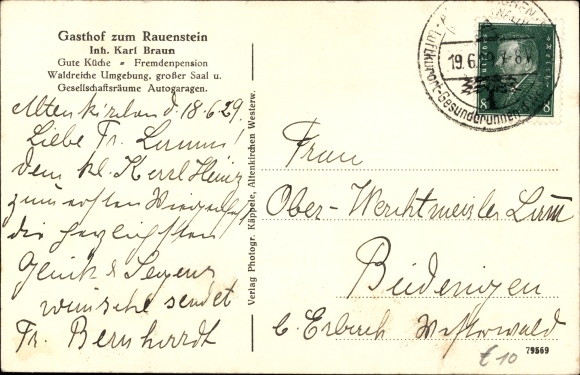 Gasthof zum Rauenstein
Inh. Karl Braun
Gute Küche = Fremdenpension
Waldreiche Umgebung, großer Saal u.
Gesellschaftsräume Autogaragen.
Altenkirchen d 18.6.29.
Liebe Fr.
dem kl. Karl Heinz
zum ersten
die herzlichsten
Glück & Segens
wünsche sendet
Fr. Bernhardt
Verlag Photogr. Käppele, Altenkirchen Westerw.
19.6.
Luftkurort
8 8
Frau
Ober-Werkmeister
b. Erbach Westerwald
79569
£10